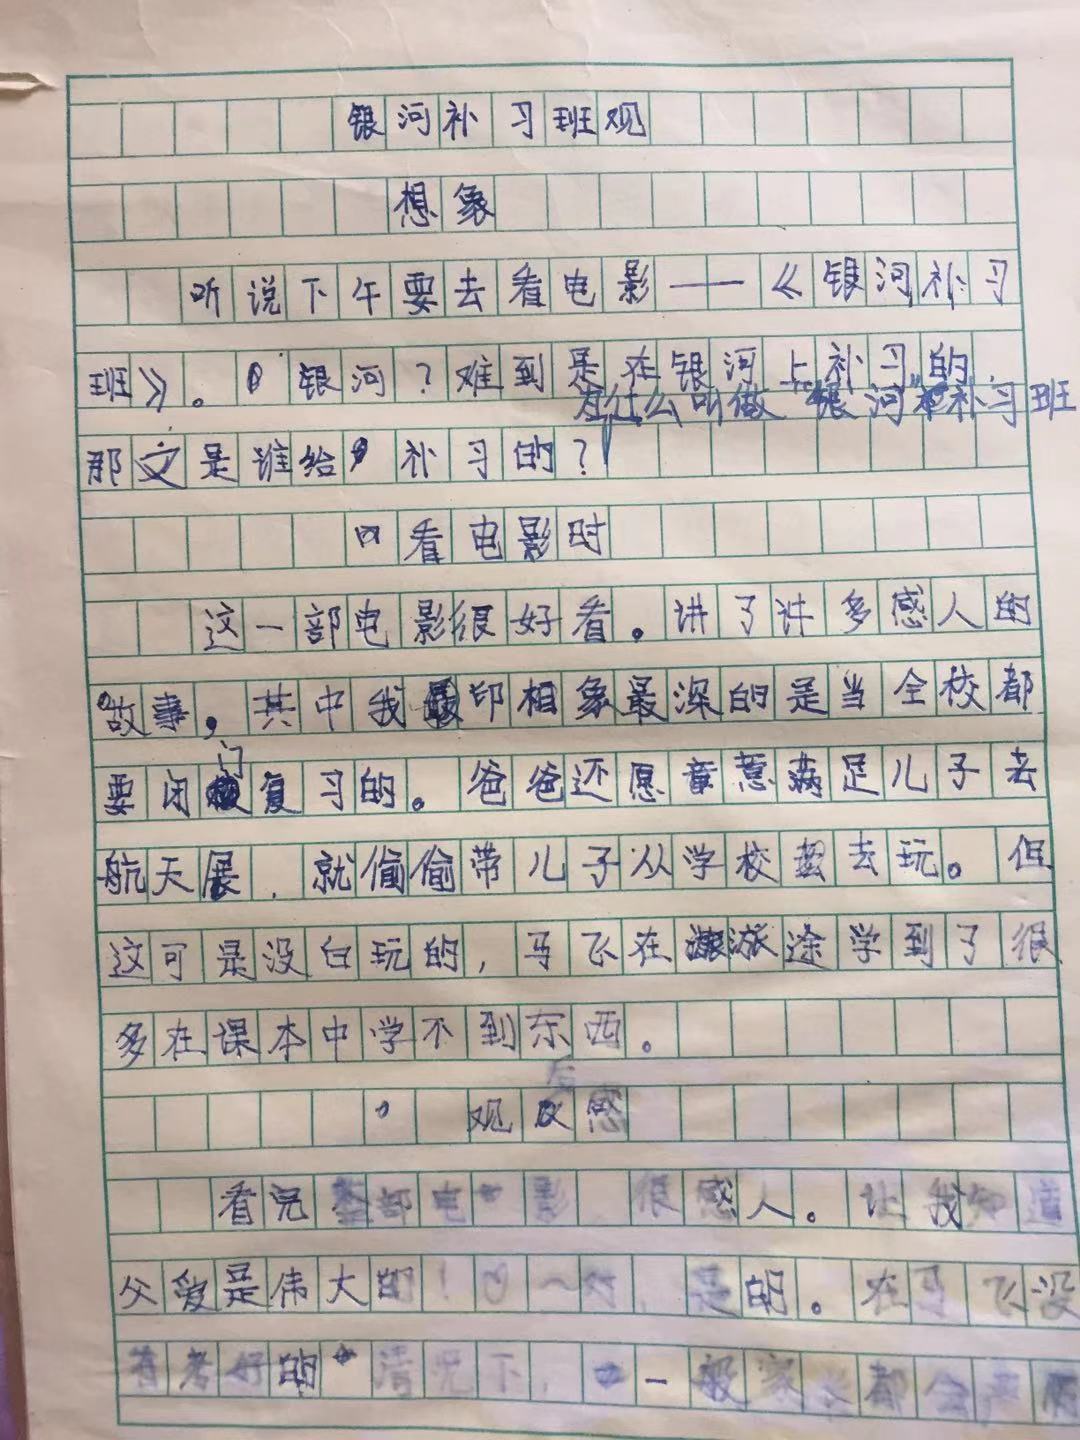 银河补习班观
想象
听说下午要去看电影——《银河补习
班》。银河？难到是在银河上补习的，
为什么叫做“银河补习班
那文是谁给补习的？
看电影时
这一部电影很好看。讲了许多感人的
故事，其中我印相象最深的是当全校都
要闭门复习的。爸爸还愿意满足儿子去
航天展，就偷偷带儿子从学校去玩。但
这可是没白玩的，马飞在旅途学到了很
多在课本中学不到东西。
观后感
看完整部电影 很感人。让我知道
父爱是伟大的！是的。在马飞没
有考好的情况下，一般家长都会